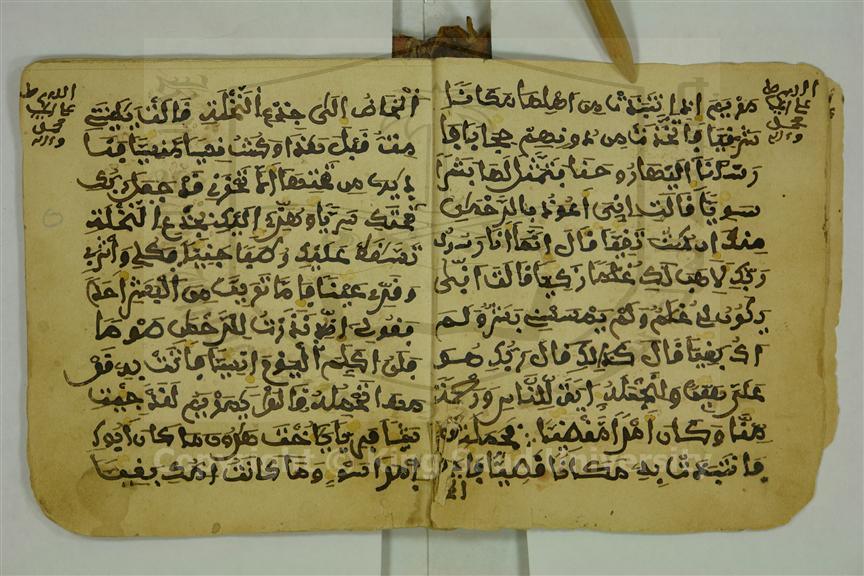 مريم اذ انتبذت من اهلها مكانا
شرقيا فاتخذت من دونهم حجابا فا
رسلنا اليها روحنا فتمثل لها بشرا
سويا قالت اني اعوذ بالرحمن
منك ان كنت تقيا قال انما انا رسول
ربك لاهب لك غلما زكيا قالت انى
يكون لي غلم ولم يمسسني بشر ولم
اك بغيا قال كذلك قال ربك هو
علي هين ولنجعله اية للناس ورحمة
منا وكان امرا مقضيا فحملته
فانتبذت به مكانا قصيا
المخاض الى جذع النخلة قالت يليتني
مت قبل هذا وكنت نسيا منسيا فنا
ديها من تحتها الا تحزني قد جعل ربك
تحتك سريا وهزي اليك بجذع النخلة
تسقط عليك رطبا جنيا فكلي واشربي
وقري عينا فاما ترين من البشر احدا
فقولي اني نذرت للرحمن صوما
فلن اكلم اليوم انسيا فاتت به قو
مها تحمله قالوا يمريم لقد جيت
شيا فريا ياخت هرون ما كان ابوك
امرا سوء وما كانت امك بغيا
Copyright © King Saud University